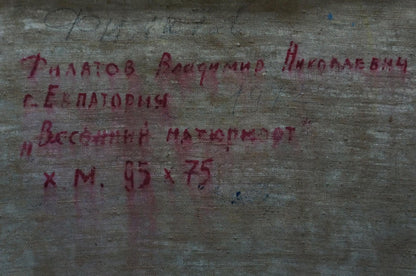 Филатов Владимир Николаевич
г. Евпатория
„Весенний натюрморт"
х. м. 95 х 75